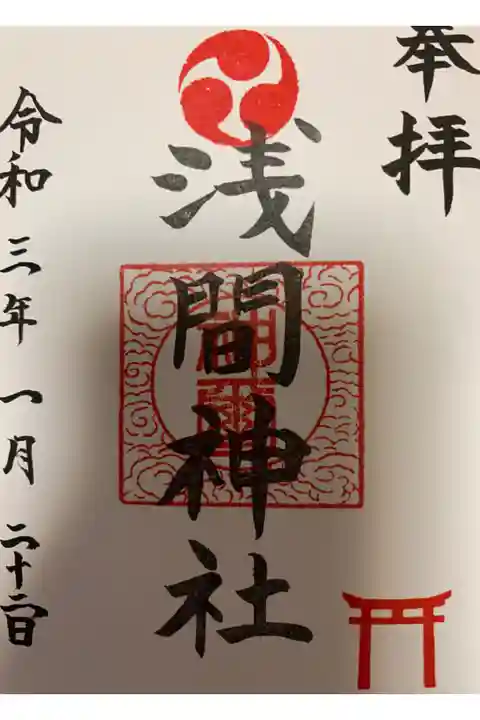 奉拝
浅間神社
神璽
令和三年一月二十二日